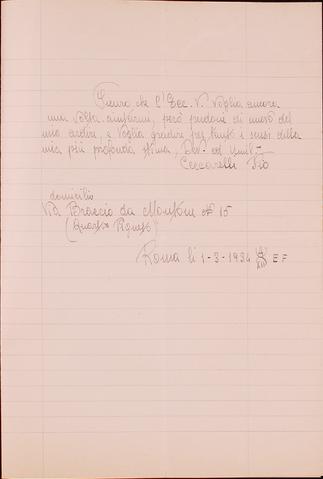 Sicuro che l'Ecc. V. voglia ancora
una volta aiutarmi, però perdono di nuovo del
mio ardire, e voglia gradire per tanto i sensi della
mia più profonda stima, Dev. ed Umil.
Ceccarelli Pio
domicilio
Via Braccio da Montone N° 15
(Quarto Pigneto)
Roma li 1-3-1934 XII E F